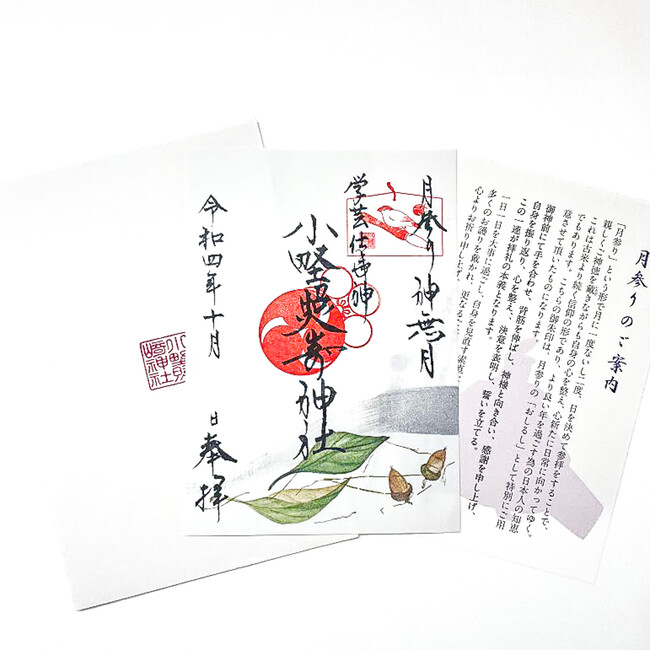 月参りのご案内
「月参り」という形で月に一度ないし二度、日を決めて参拝をすることで、
親しくご神徳を戴きながらも自身の心を整え、心新たに日常に向かってゆく。
これは古来より続く信仰の形であり、より良い年を過ごす為の日本人の知恵
でもあります。こちらの御朱印は、月参りの「おしるし」として特別にご用
意させて頂いたものになります。
御神前にて手を合わせ、背筋を伸ばし、神様と向き合い、感謝を申し上げ、
自身を振り返り、心を整え、決意を表明し、誓いを立てる。
この一連が拝礼の本義となります。
一日一日を大事に過ごして、自身を見直す素直
多くのお護りを戴かれ、更なる
心よりお祈り申し上げ
月参り 神無月
学芸仕事神
小野照崎神社
令和四年十月 日 奉拝
小野照崎神社